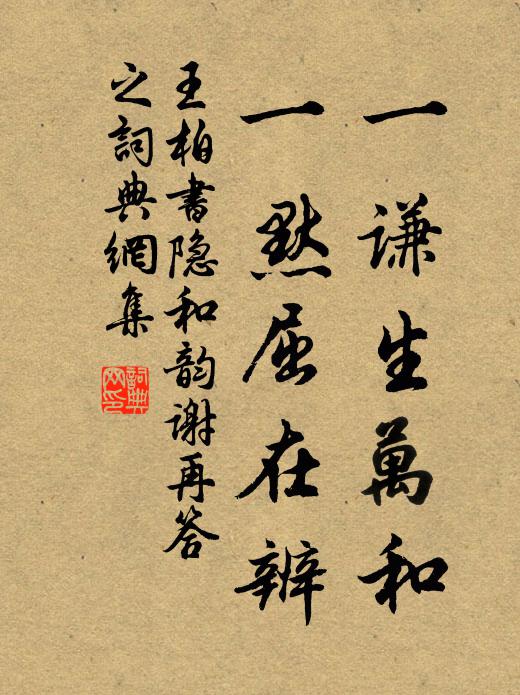 一謙生萬和
一默屈在辨
王柏書隐和韵谢再答
之詞典網集
詞典网印